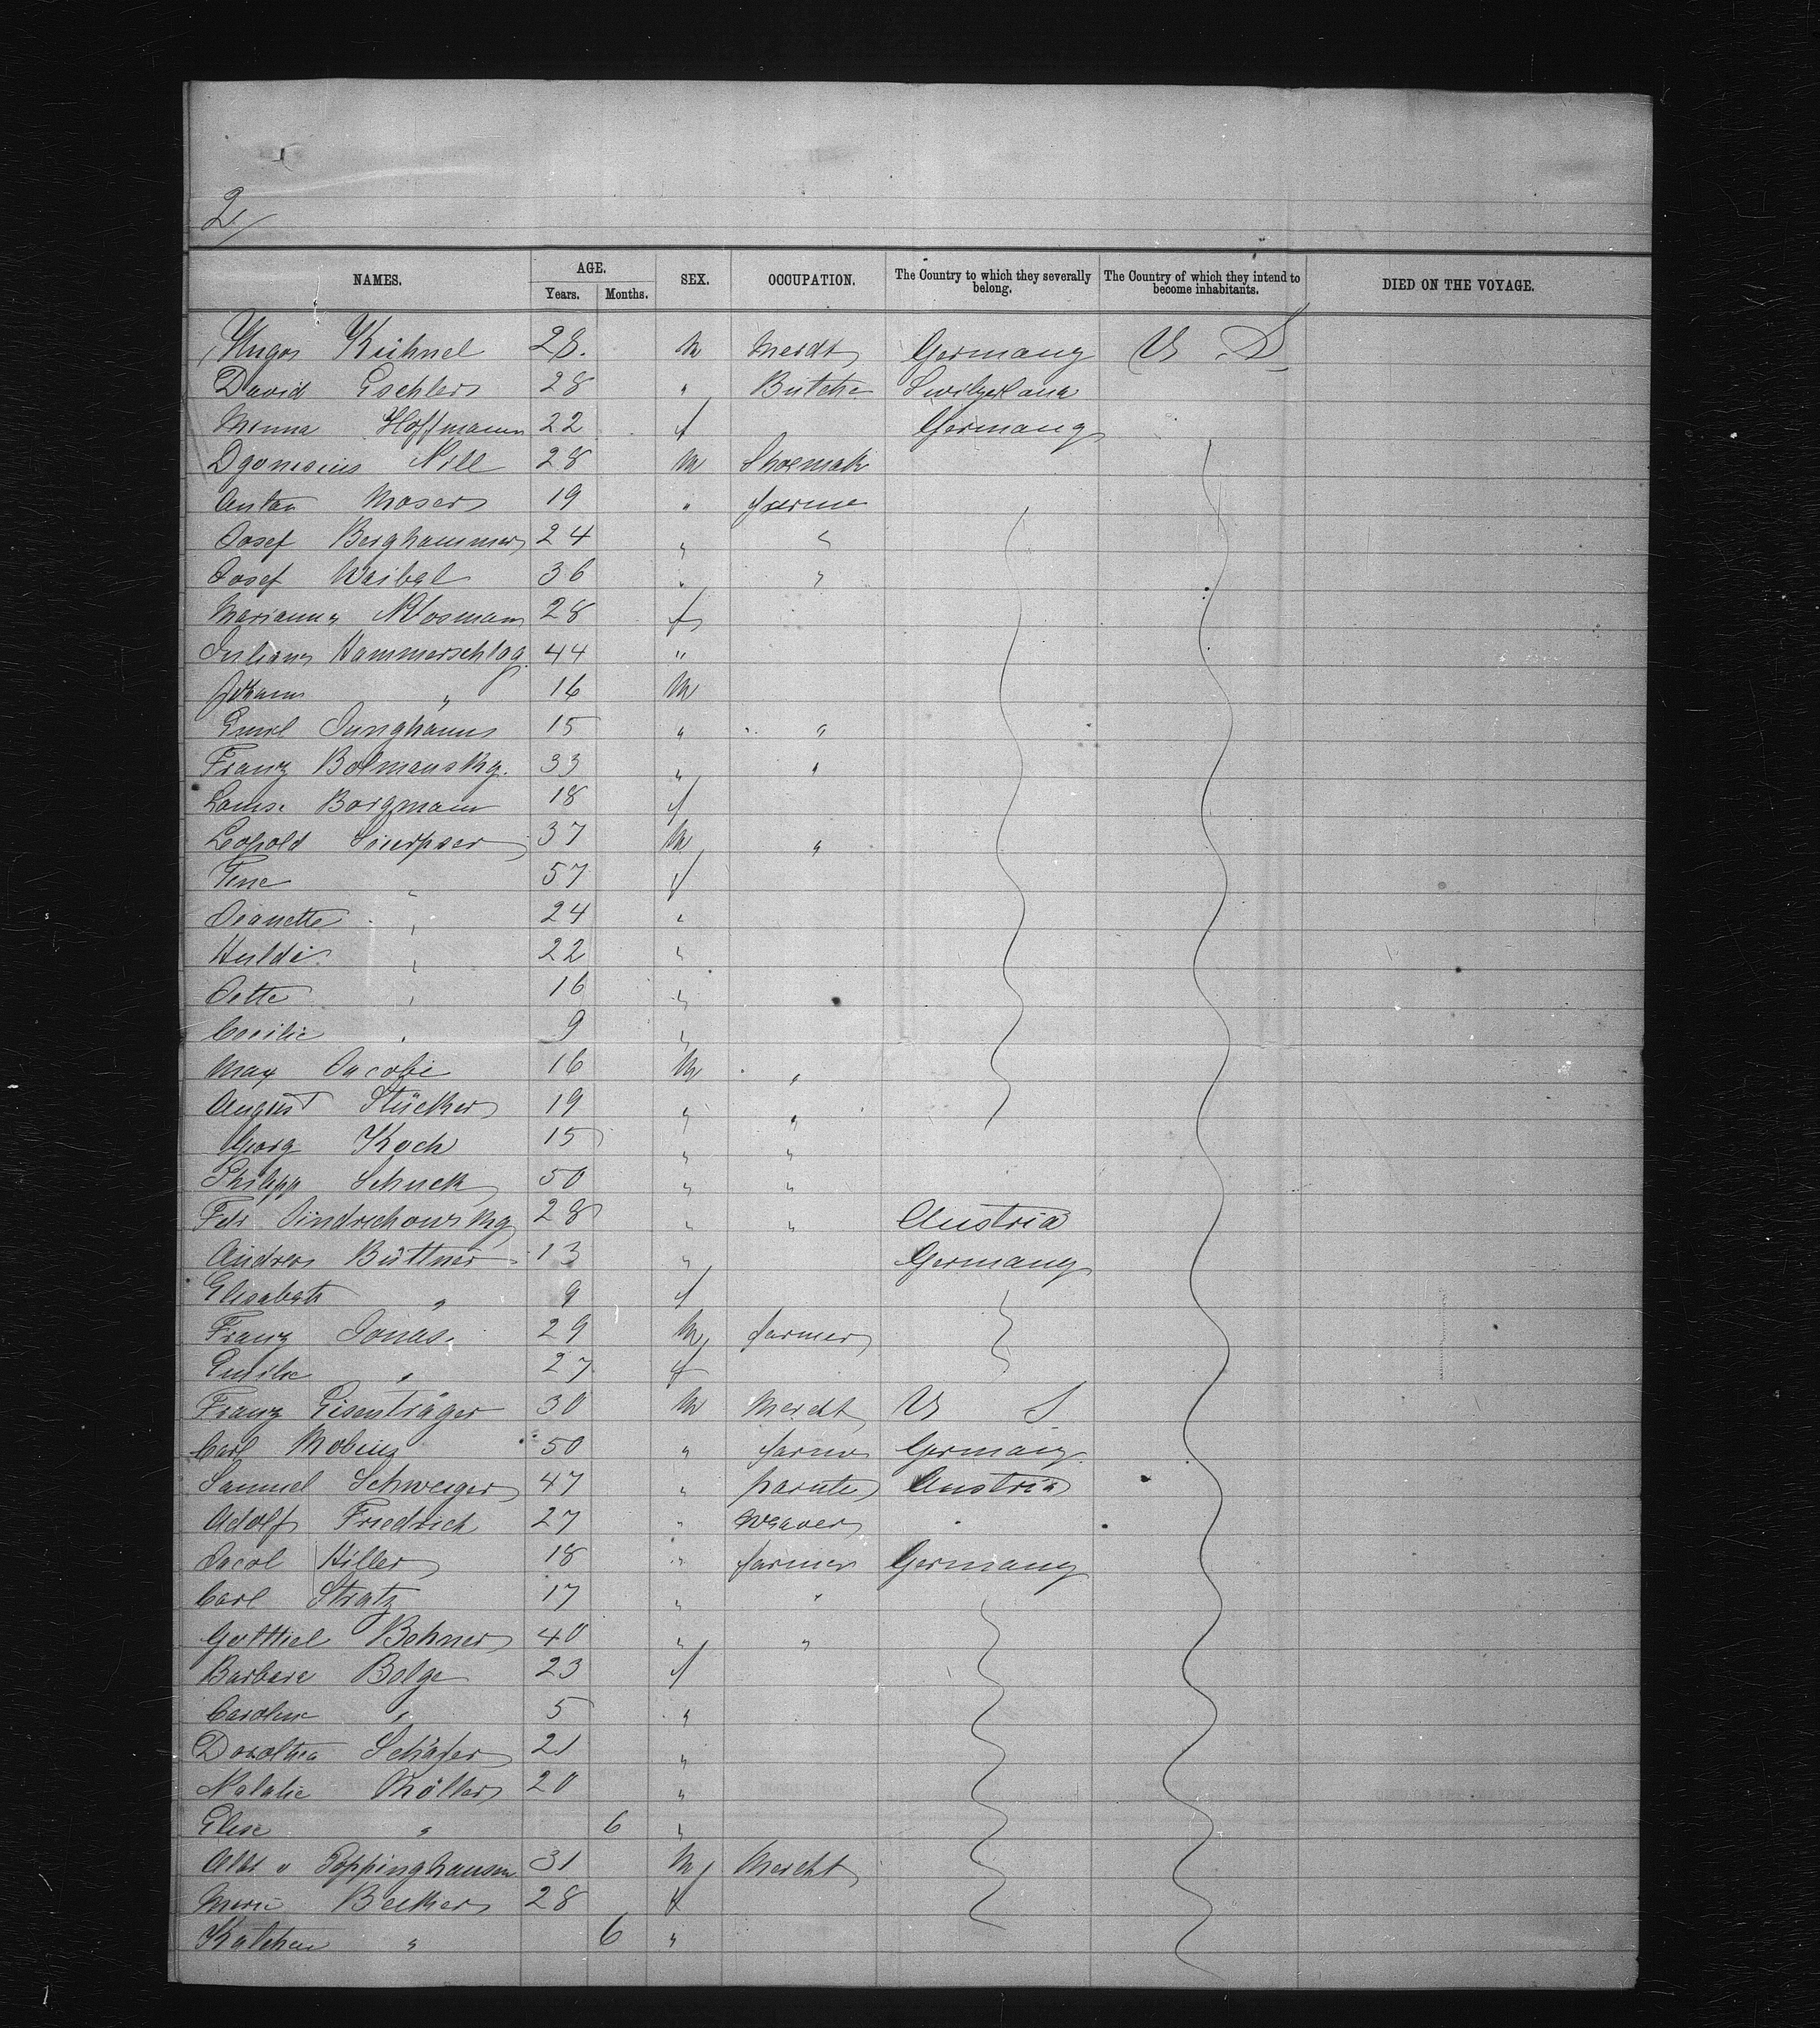 2/
NAMES. AGE. Years. Months. SEX. OCCUPATION. The Country to which they severally belong. The Country of which they intend to become inhabitants. DIED ON THE VOYAGE.
Hugo Kühnel 28. M Merdt Germany U S
David Eschler 28 " Butche Switzerland
Minna Hoffmann 22 f Germany
Dyonisius Nill 28 M Shoemak
Anton Moser 19 " farme
Josef Berghammer 24 " "
Josef Waibel 36 " "
Marianna Mosmann 28 f
Juliane Hammerschlag 44 "
Johann " 16 M
Emil Junghanns 15 " "
Franz Bolmansky. 33 " "
Louise Borgmann 18 f
Leopold 37 M "
57 f
Jeanette " 24 "
Hulda " 22 "
Jette " 16 "
Cecilie " 9 "
Max Jacobi 16 M "
August Stücker 19 " "
Georg Koch 15 " "
Philipp Schuck 50 " "
Jindrichowsky 28 " " Austria
Andreas Büttner 13 " Germany
Elisabeth " 9 f
Franz Jonas. 29 M farmer
Emilie " 27 f
Franz Eisenträger 30 M Mercht U S
Carl Mobius 50 " farme Germany
Samuel Schweiger 47 " Austria
Adolf Friedrich 27 " weaver "
Jacob Hiller 18 " farmer Germany
Carl Stratz 17 " "
Gottliel Behner 40 " "
Barbara Bolge 23 f
Caroline " 5 "
Dorothea Schäfer 21 "
Natalie Möller 20 "
Elise " 6 "
Albt v Poppinghausen 31 M Mercht
Marie Becker 28 f
Katchen " 6 "